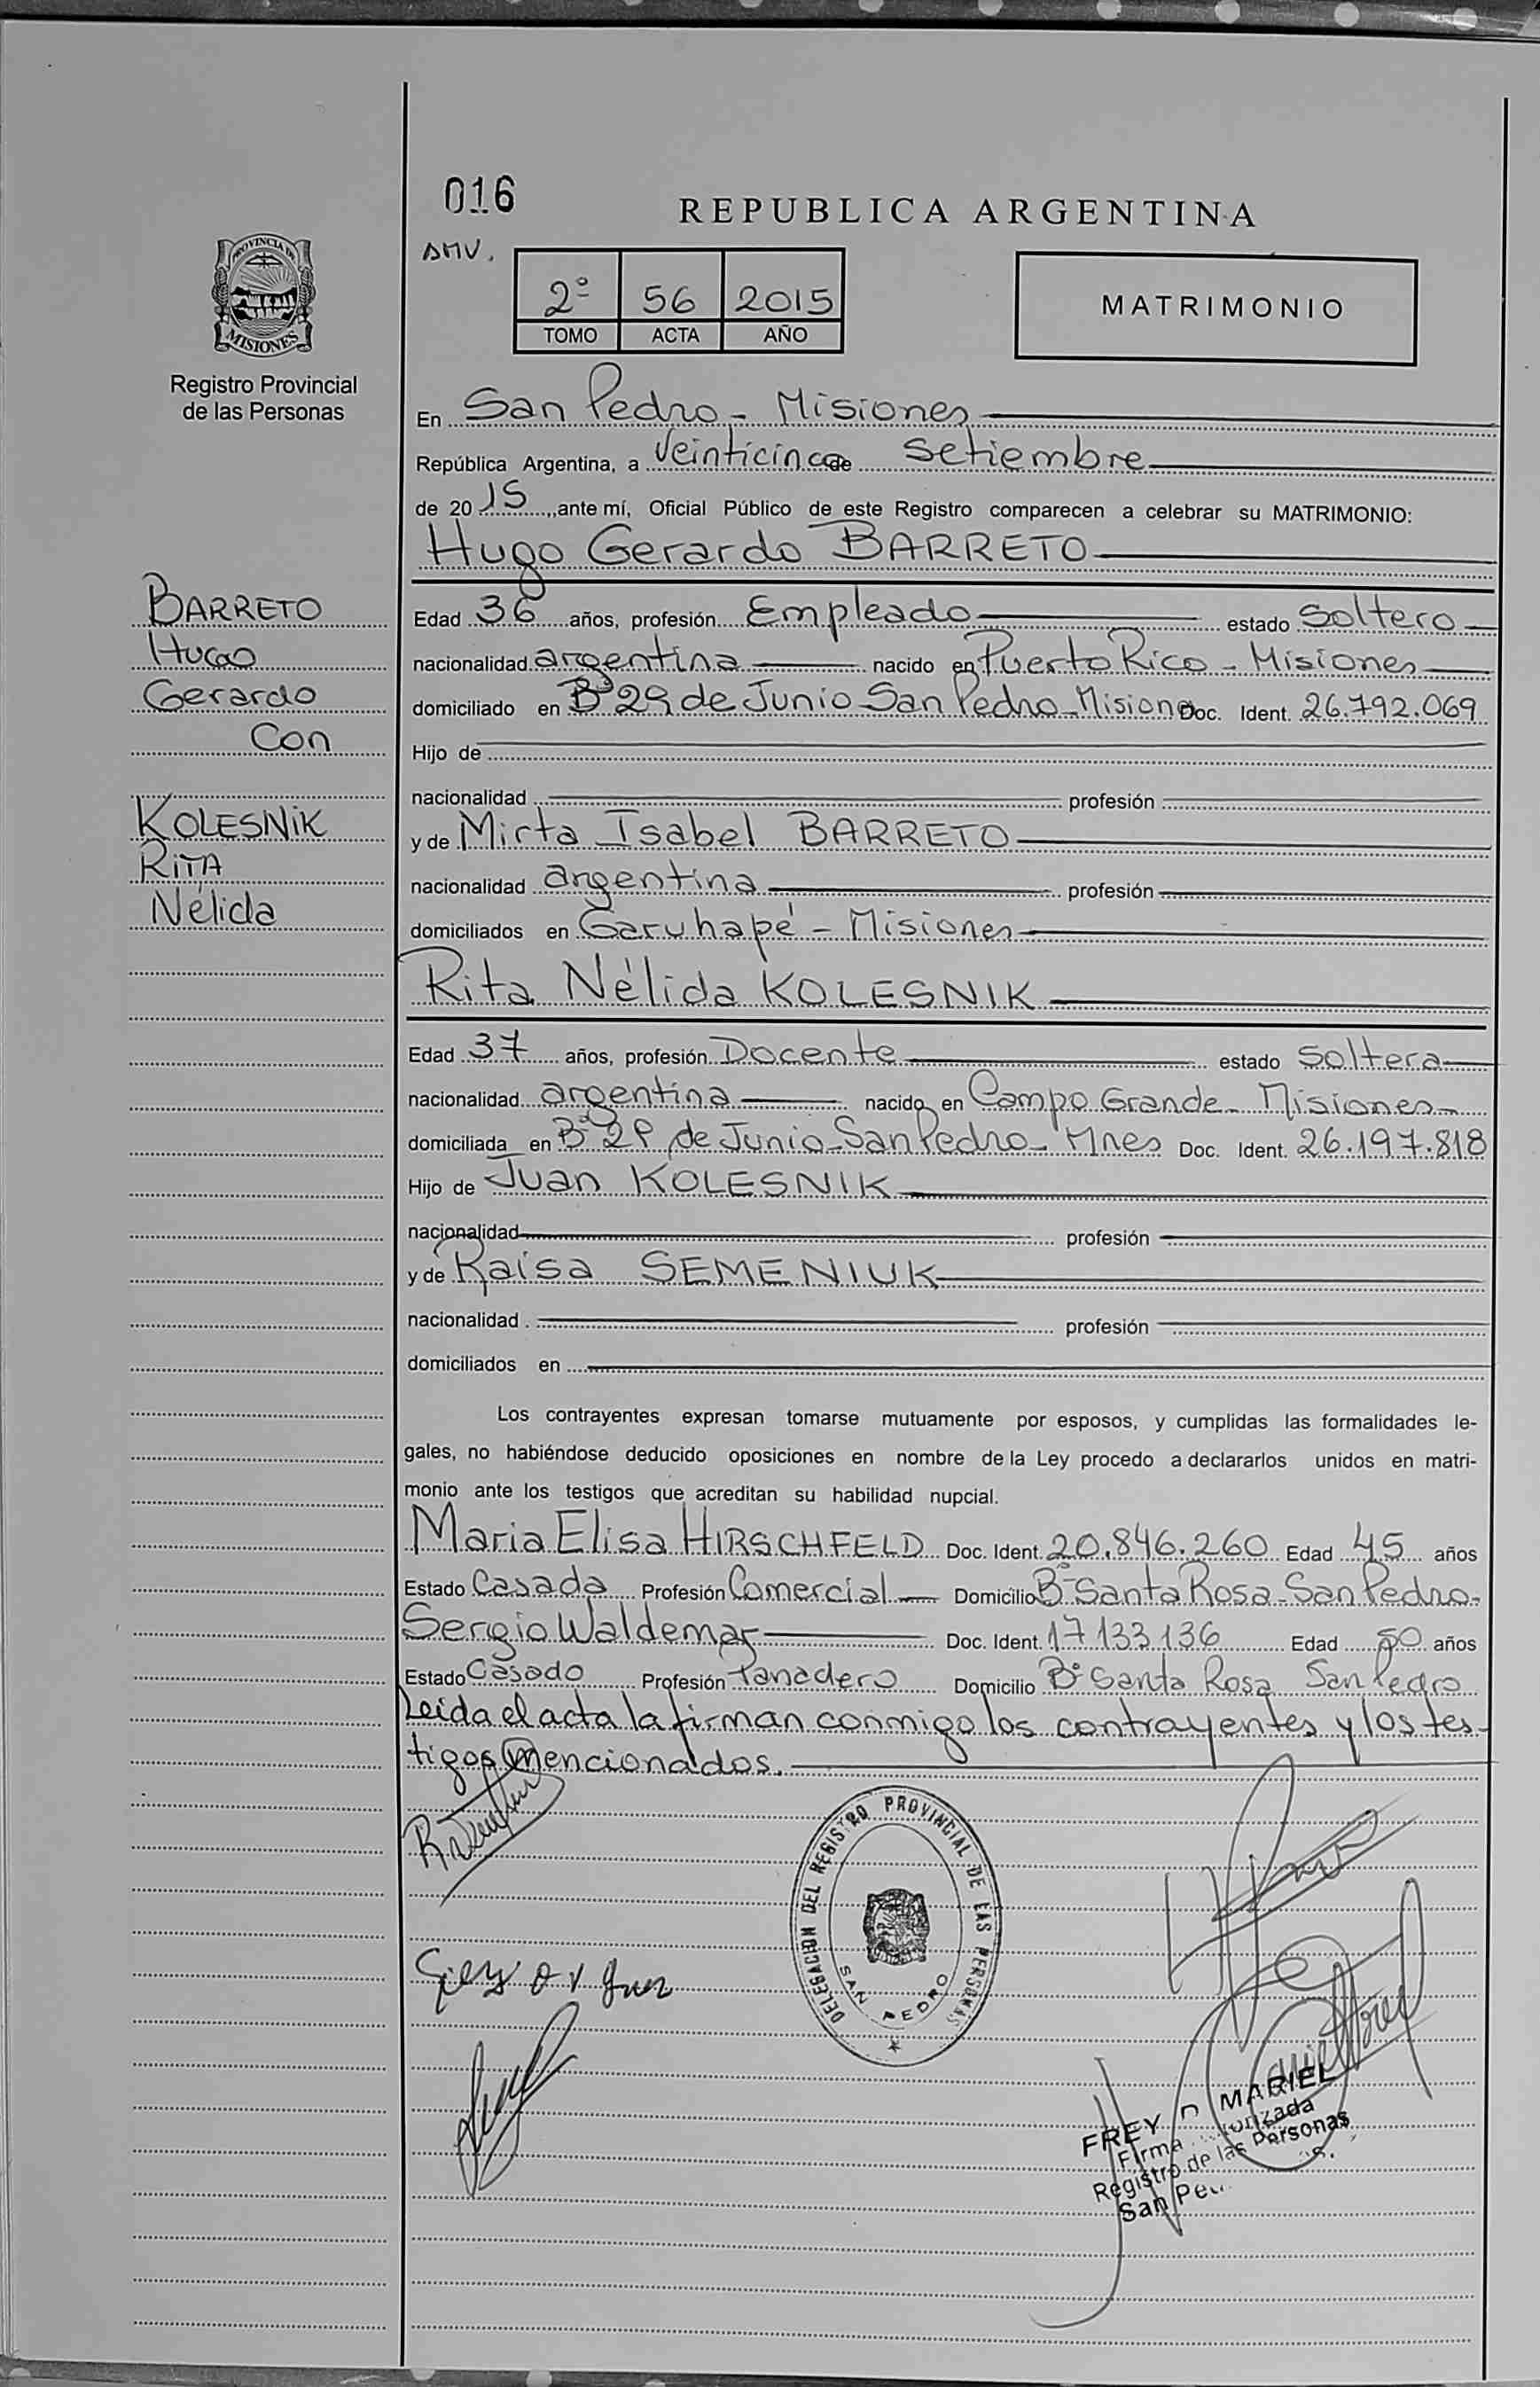 016
REPUBLICA ARGENTINA
PROVINCIA DE
MISIONES
Registro Provincial
de las Personas
2º 56 2015
TOMO ACTA AÑO
MATRIMONIO
En San Pedro - Misiones
República Argentina, a Veinticinco de Setiembre
de 2015, ante mí, Oficial Público de este Registro comparecen a celebrar su MATRIMONIO:
Hugo Gerardo BARRETO
BARRETO
Hugo
Gerardo
Con
KOLESNIK
RITA
Nélida
Edad 36 años, profesión Empleado estado Soltero
nacionalidad argentina nacido en Puerto Rico - Misiones
domiciliado en Bº 29 de Junio San Pedro - Misiones Doc. Ident. 26.792.069
Hijo de
nacionalidad profesión
y de Mirta Isabel BARRETO
nacionalidad argentina profesión
domiciliados en Garuhapé - Misiones
Rita Nélida KOLESNIK
Edad 37 años, profesión Docente estado Soltera
nacionalidad argentina nacido en Campo Grande - Misiones
domiciliada en Bº 29 de Junio - San Pedro - Mnes Doc. Ident. 26.197.818
Hijo de Juan KOLESNIK
nacionalidad profesión
y de Raisa SEMENIUK
nacionalidad profesión
domiciliados en
Los contrayentes expresan tomarse mutuamente por esposos, y cumplidas las formalidades le-
gales, no habiéndose deducido oposiciones en nombre de la Ley procedo a declararlos unidos en matri-
monio ante los testigos que acreditan su habilidad nupcial.
Maria Elisa HIRSCHFELD Doc. Ident. 20.846.260 Edad 45 años
Estado Casada Profesión Comercial Domicilio Bº Santa Rosa - San Pedro-
Sergio Waldemar Doc. Ident. 17133136 Edad 50 años
Estado Casado Profesión Panadero Domicilio Bº Santa Rosa San Pedro
Leída el acta la firman conmigo los contrayentes y los tes-
tigos mencionados.
DELEGACION DEL REGISTRO PROVINCIAL DE LAS PERSONAS
SAN PEDRO
FREY MARIEL
Firma
Registro de las Personas
San